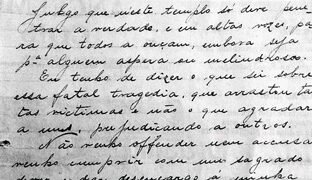 Julgo que n'este templo só deve pene-
trar a verdade, e em altas vozes, pa-
ra que todos a ouçam, embora seja
pª alguem aspera ou melindrosa.
Eu tenho de dizer o que sei sobre
essa fatal tragedia, que arrastou ta-
tas victimas e não o que agradar
a uns, prejudicando a outros.
Não venho offender nem accusar
venho cumprir com um sagrado
dever e dar descargo á minha